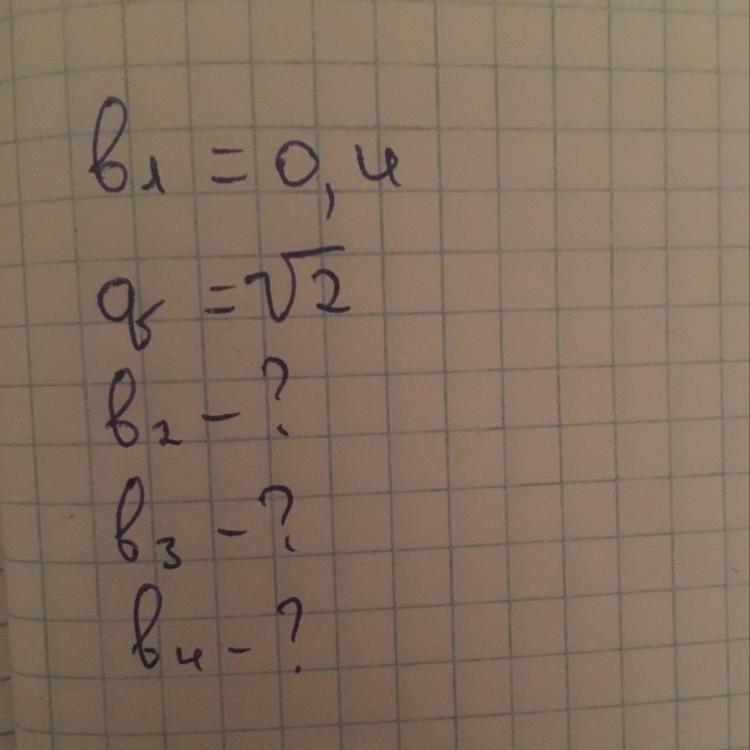 b₁ = 0,4
q = √2
b₂ - ?
b₃ - ?
b₄ - ?